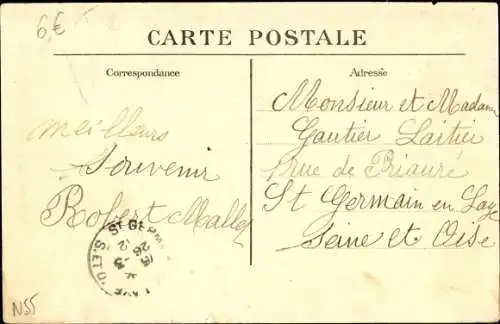 6€
CARTE POSTALE
Correspondance
Adresse
meilleurs
Souvenir
Robert Mallet
Monsieur et Madame
Gautier Laitier
rue de Priauré
St Germain en Laye
Seine et Oise
ST GERM
N55